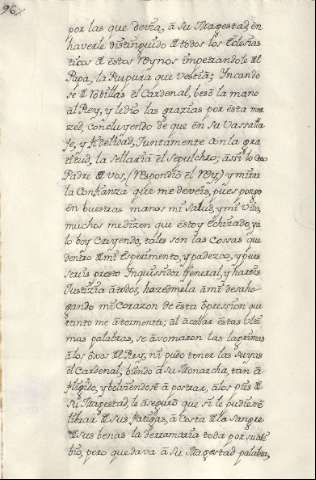 96
por las que devia, a su Magestad, en
haverle distinguido de todos los Eclesias
ticos de estos Reynos impetrandole del
Papa, la Purpura que Vestia; Yncando
se de rodillas el Cardenal, besò la mano
al Rey, y lidio las grazias por esta mer
zed, Concluyendo de que en su Vassalla
je, y fidelidad, Juntamente con la gra
titud, la sellaria el sepulchro; assi lo Creo
Padre de vos, (respondio el Rey) y mirad
la Confianza que me deveis, pues pongo
en buestras manos mi salud, y mi vida,
muchos me dizen que estoy echizado, ya
lo boy Creyendo, tales son las cossas que
dentro de mi experimento, y padezco, y pues
sereis presto Inquisidor General, y hareis
Justizia a todos, hazedmela a mi desaho
gando mi Corazon de esta opression que
tanto me atormenta; al acabar estas ulti
mas palabras, se asomaron las lagrimas
a los ojos del Rey, ni pudo tener las suyas
el Cardenal, biendo a su Monarcha, tan a
fligido, y bolviendose a postrar, a los pies de
su Magestad, le aseguró que si le pudiesse
librar de sus fatigas, a Costa de la sangre
de sus benas la derramaria toda por su ali
bio, pero que dava a su Magestad palabra,